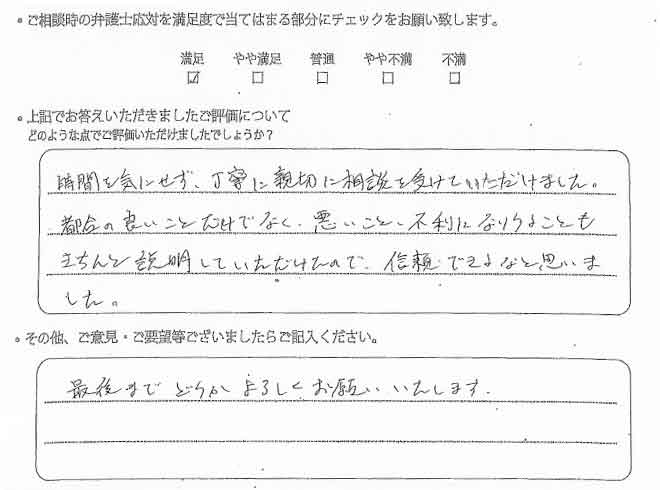 ・ご相談時の弁護士応対を満足度で当てはまる部分にチェックをお願い致します。
満足 やや満足 普通 やや不満 不満
☑ □ □ □ □
・上記でお答えいただきましたご評価について
どのような点でご評価いただけましたでしょうか？
時間を気にせず、丁寧に親切に相談を受けていただけました。
都合の良いことだけでなく、悪いこと、不利になりうることも
きちんと説明していただけたので、信頼できるなと思いま
した。
・その他、ご意見・ご要望等ございましたらご記入ください。
最後までどうかよろしくお願いいたします。